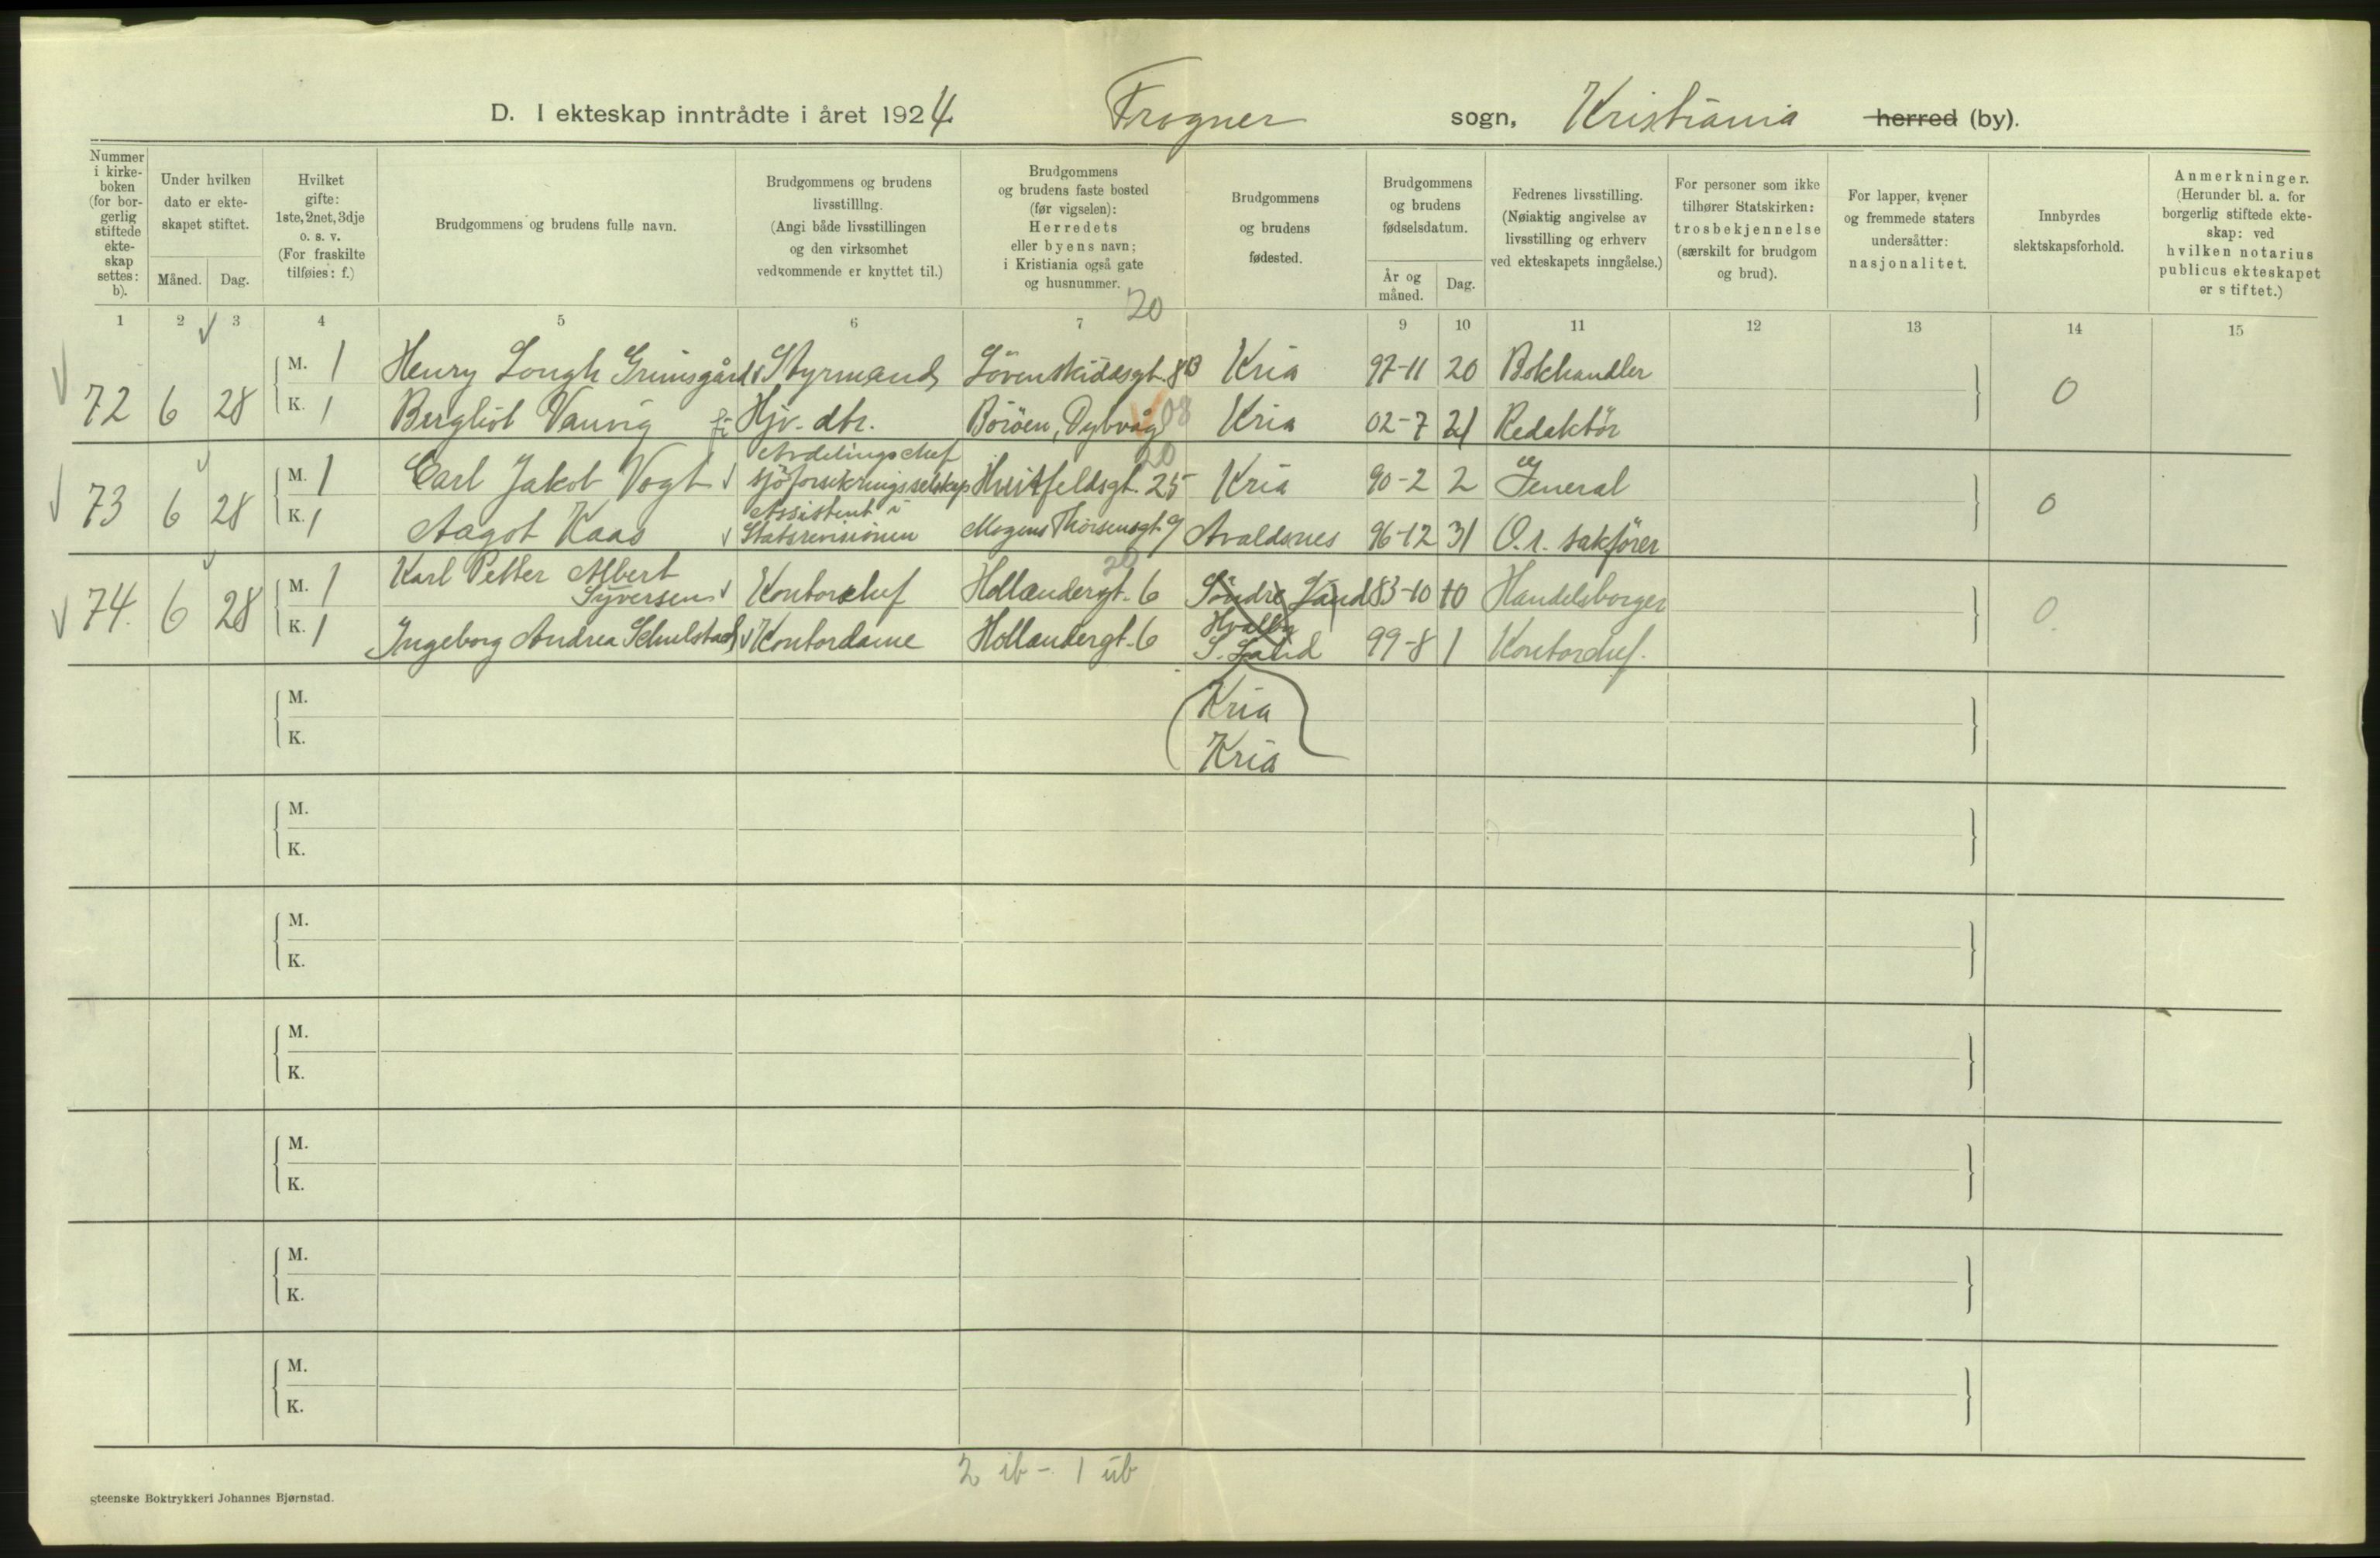 D. I ekteskap inntrådte i året 1924. Frogner sogn, Kristiania herred (by).
Nummer i kirke-boken (for bor-gerlig stiftede ekte-skap settes: b).
Under hvilken dato er ekte-skapet stiftet.
Måned. Dag.
Hvilket gifte: 1ste, 2net, 3dje o. s. v. (For fraskilte tilføies: f.)
Brudgommens og brudens fulle navn.
Brudgommens og brudens livsstilllng. (Angi både livsstillingen og den virksomhet vedkommende er knyttet til.)
Brudgommens og brudens faste bosted (før vigselen): Herredets eller byens navn; i Kristiania også gate og husnummer.
Brudgommens og brudens fødested.
Brudgommens og brudens fødselsdatum.
År og måned. Dag.
Fedrenes livsstilling. (Nøiaktig angivelse av livsstilling og erhverv ved ekteskapets inngåelse.)
For personer som ikke tilhører Statskirken: trosbekjennelse (særskilt for brudgom og brud).
For lapper, kvener og fremmede staters undersåtter: nasjonalitet.
Innbyrdes slektskapsforhold.
Anmerkninger. (Herunder bl. a. for borgerlig stiftede ekte-skap: ved hvilken notarius publicus ekteskapet er stiftet.)
1 2 3 4 5 6 7 9 10 11 12 13 14 15
20
M. 1 Henry Lough Grimsgård Styrmand Lövenskioldsgt. 8B Kria 97-11 20 Bokhandler
72 6 28 0
K. 1 Bergliot Vauvig Hjv. dtr. Böröen, Dybvåg 08 Kria 02-7 21 Redaktör
Avdelingschef 20
M. 1 Carl Jakob Vogt sjöforsikringsselskap Huitfeldsgt. 25 Kria 90-2 2 General
73 6 28 0
Assistent i
K. 1 Aagot Kaas Statsrevisionen Mogens Thorsensgt. 9 Avaldsnes 96-12 31 O.r. sakförer
Karl Petter Albert 20
M. 1 Syversen Kontorchef Hollendergt. 6 Söndre Land 83-10 10 Handelsborger
74. 6 28 0
K. 1 Ingeborg Andrea Schulstad Kontordame Hollendergt. 6 S. Land 99-8 1 Kontorchef.
M. Kria
K. Kria
M.
K.
M.
K.
M.
K.
M.
K.
M.
K.
M.
K.
2 ib - 1 üb
steenske Boktrykkeri Johannes Bjørnstad.